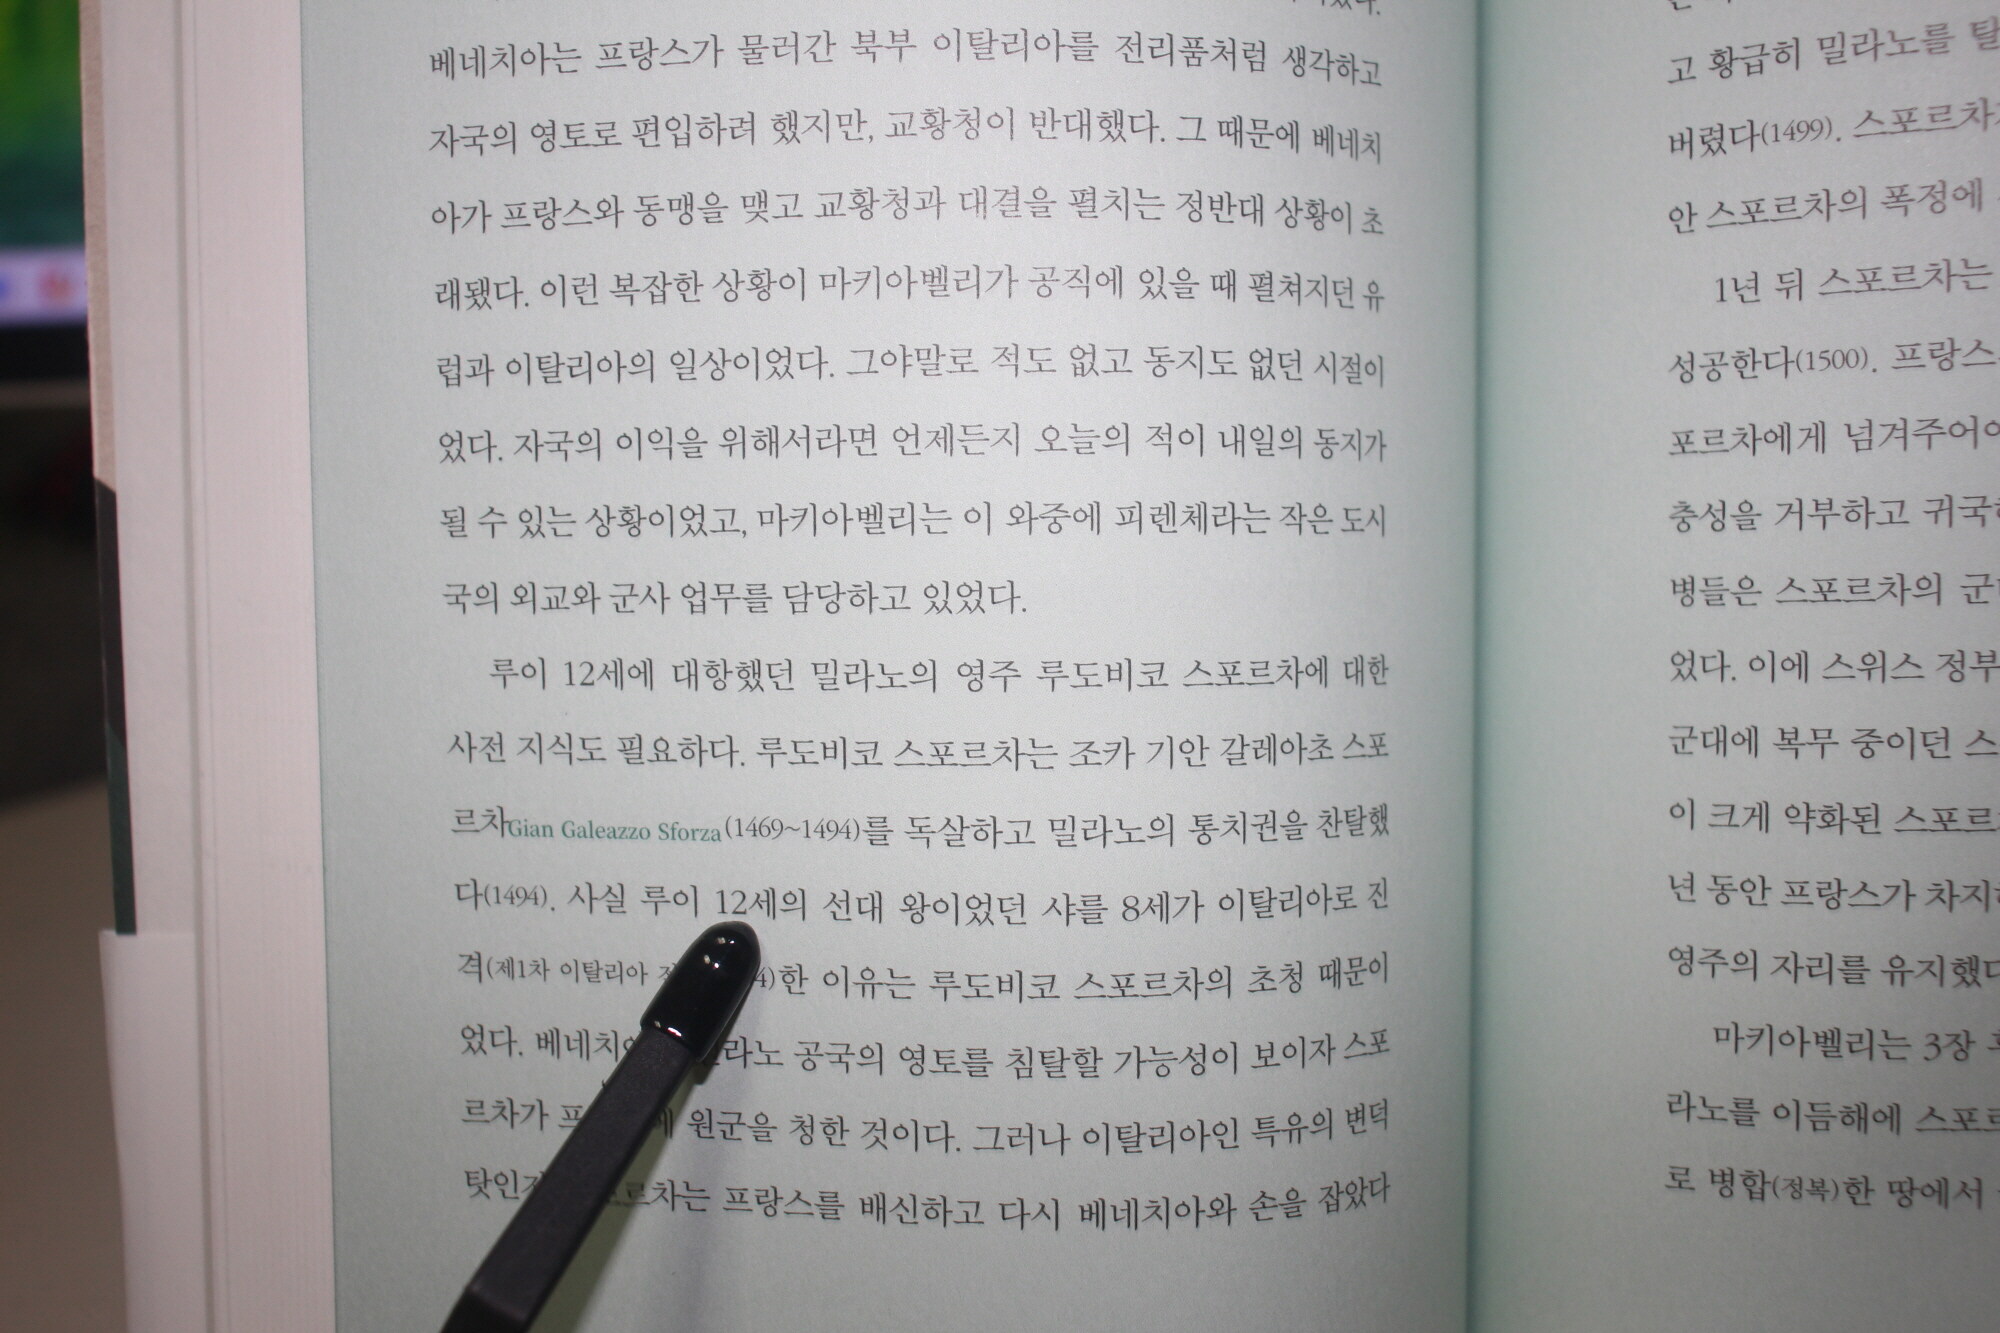 베네치아는 프랑스가 물러간 북부 이탈리아를 전리품처럼 생각하고
자국의 영토로 편입하려 했지만, 교황청이 반대했다. 그 때문에 베네치
아가 프랑스와 동맹을 맺고 교황청과 대결을 펼치는 정반대 상황이 초
래됐다. 이런 복잡한 상황이 마키아벨리가 공직에 있을 때 펼쳐지던 유
럽과 이탈리아의 일상이었다. 그야말로 적도 없고 동지도 없던 시절이
었다. 자국의 이익을 위해서라면 언제든지 오늘의 적이 내일의 동지가
될 수 있는 상황이었고, 마키아벨리는 이 와중에 피렌체라는 작은 도시
국의 외교와 군사 업무를 담당하고 있었다.
루이 12세에 대항했던 밀라노의 영주 루도비코 스포르차에 대한
사전 지식도 필요하다. 루도비코 스포르차는 조카 기안 갈레아초 스포
르차Gian Galeazzo Sforza(1469~1494)를 독살하고 밀라노의 통치권을 찬탈했
다(1494). 사실 루이 12세의 선대 왕이었던 샤를 8세가 이탈리아로 진
격(제1차 이탈리아 4)한 이유는 루도비코 스포르차의 초청 때문이
었다. 공국의 영토를 침탈할 가능성이 보이자 스포
르차가 원군을 청한 것이다. 그러나 이탈리아인 특유의 변덕
프랑스를 배신하고 다시 베네치아와 손을 잡았다
고 황급히 밀라노를
버렸다(1499).
안 스포르차의 폭정에
1년 뒤 스포르차는
성공한다(1500). 프랑스
포르차에게
충성을 거부하고
병들은 스포르차의
었다. 이에 스위스 정부
군대에 복무 중이던
이 크게 약화된
년 동안 프랑스가
영주의 자리를 유지했다
마키아벨리는 3장
라노를 이듬해에
로 병합(정복)한 땅에서